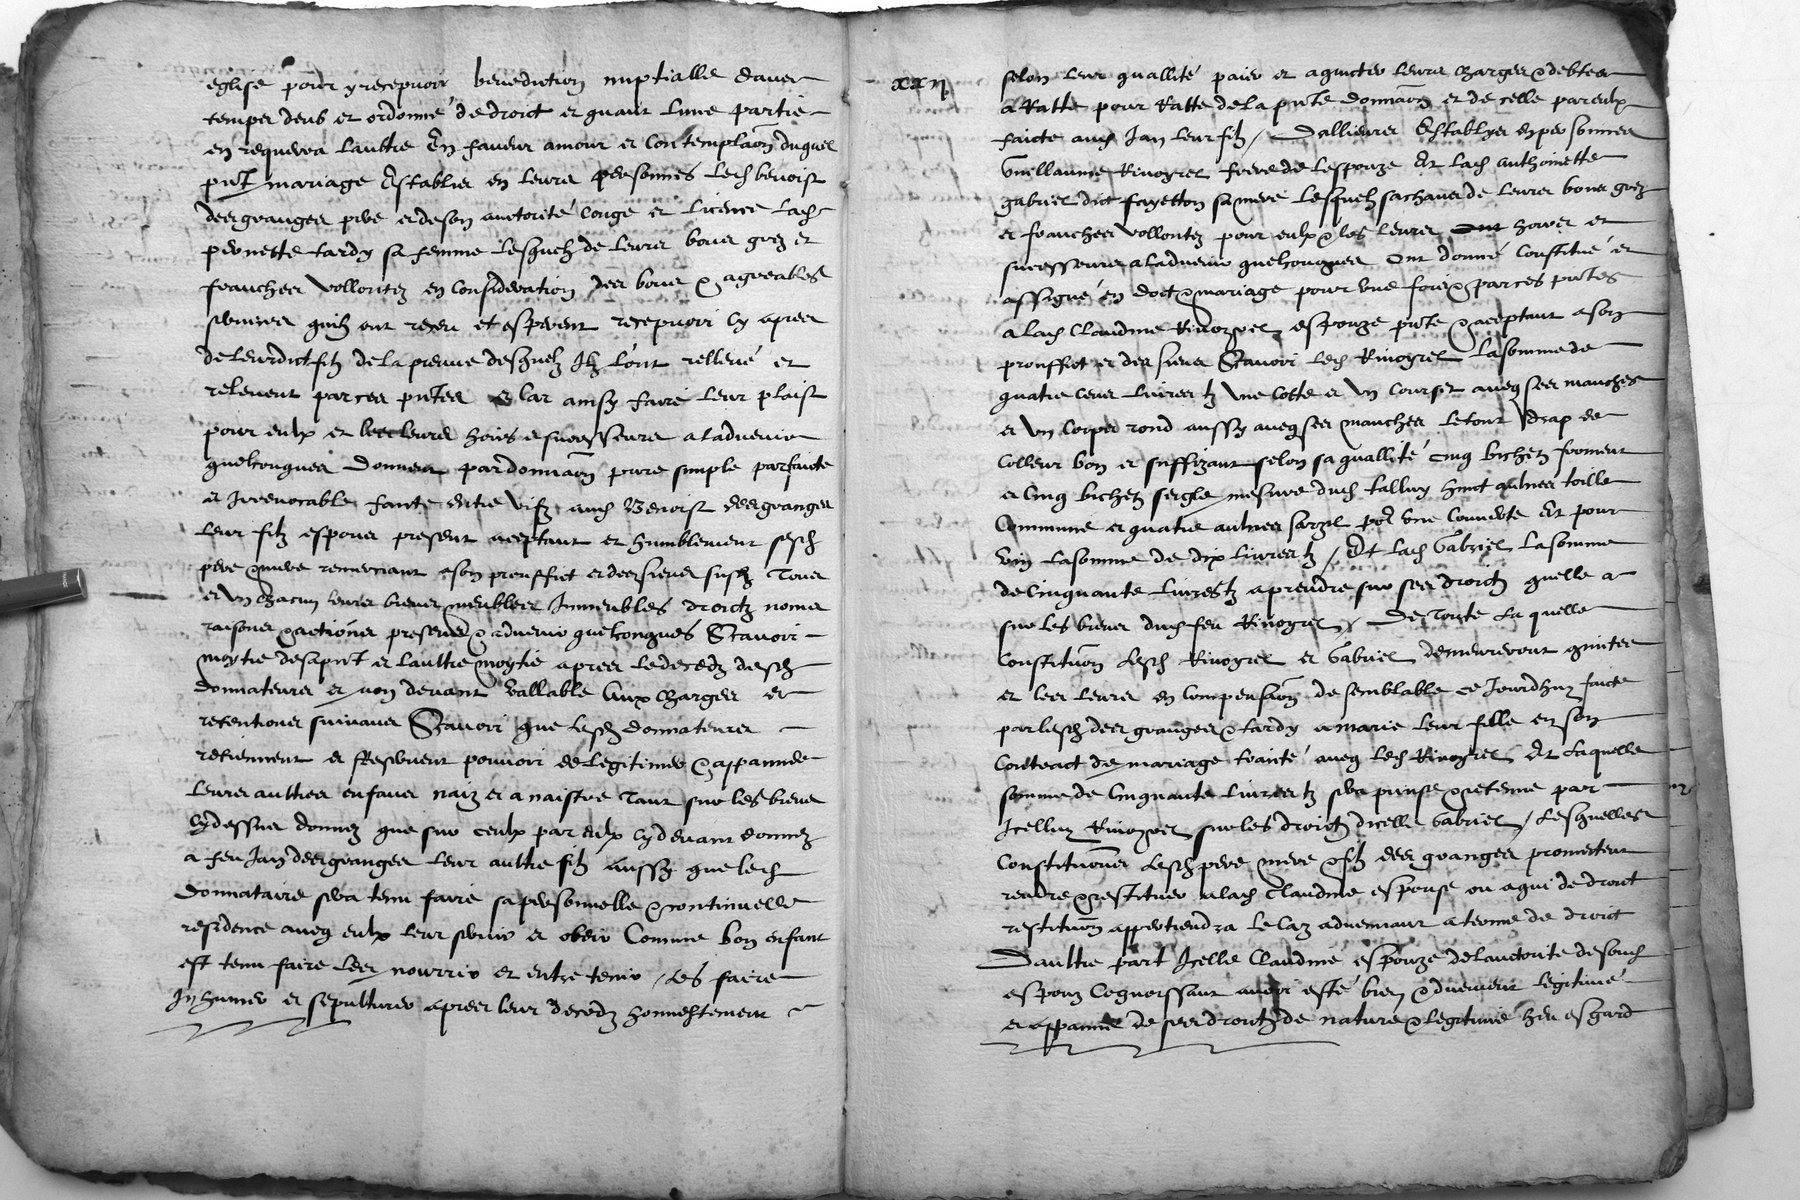 eglise pour y recepvoir benediction nuptialle dans
temps deub et ordonné de droict et quant lune partie
en requerra laultre En faveur amour et contemplaon duquel
pnt mariage Establies en leurs personnes lesd benoist
desgranges pere et de son auctorité conge et licence lad
pernette tardy sa femme lesquelz de leurs bons grez et
franches vollontez en consideration des bons & agreables
services quilz ont receu et esperent recepvoir cy apres
de leurdict filz de la preuve desquelz Ilz lont rellevé et
relevent par ces pntes et car ainsy faire leur plaist
pour eulx et les leurs hoirs et successeurs a ladvenir
quelconques donnent par donnaon pure simple parfaicte
et Irrevocable faicte entre vifz aud Benoist desgranges
leur filz espoux present acceptant et humblement sesd
pere & mere remerciant a son prouffict et des siens susd Tous
et un chacun leurs biens meubles Immeubles droictz noms
raisons & actions presens & advenir quelconques Scavoir
moytie desapnt et laultre moytié apres le decedz desd
donnateurs et non devant vallable Aux charges et
retentions suivans Scavoir que lesd donnateurs
retiennent et se reservent pouvoir de legitimer & appanner
leurs aultres enfans naiz et a naistre Tant sur les biens
cy dessus donnez que sur ceulx par eulx cy devant donnez
a feu Jan desgranges leur aultre filz Aussy que led
donnataire sera tenu faire sa personnelle & continuelle
residence avec eulx leur servir et obeir Comme bon enfant
est tenu faire les nourrir et entretenir / les faire
Inhumer et sepulturer apres leur decedz honnestement
xxii
selon leur quallité paier et acquicter leurs charges & debtes
a Ratte pour Ratte de la pnte donnaon et de celle par eulx
faicte aud Jan leur filz / Dallieurs Establys en personnes
Guillaume Rivoyrel frere de lespouze Et lad anthoinette
gabriel dict fayetton sa mere Lesquelz sachans de leurs bons grez
et franches vollontez pour eulx & les leurs hoirs et
successeurs a ladvenir quelconques Ont donné Constitué et
assigné en doct & mariage pour une fois & par ces pntes
a lad Claudine Rivoyrel espouze pnte & acceptant a son
prouffict et des siens Scavoir led Rivoyrel La somme de
quatre cens livres tz une cotte et un courset aveq ses manches
et un corps rond aussy aveq ses manches le tout drap de
colleur bon et suffizant selon sa quallité cinq bichetz froment
et cinq bichetz seigle mesure dud talluy huict aulnes toille
Commune et quatre aulnes sarzil pour une couverte Et pour
vin La somme de dix livres tz / Et lad Gabriel La somme
de Cinquante livres tz a prendre sur ses droictz quelle a
sur les biens dud feu Rivoyrel / De Toute La quelle
Constituon lesd Rivoyrel et Gabriel demeureront quictes
et les leurs en compensaon de semblable ce Jourdhuy faicte
par lesd desgranges & tardy a marie leur fille en son
Contract de mariage traicté aveq led Rivoyrel Et laquelle
somme de Cinquante livres tz sera prinse & retenue par
Icelluy Rivoyrel sur les droictz dicelle Gabriel / Lesquelles
Constituons lesd pere mere & filz desgranges promettent
rendre & restituer a lad Claudine espouse ou a qui de droit
restituon appertiendra le cas advenant a terme de droict
Daultre part Icelle Claudine espouze de lauctorité de sond
espoux Cognoissant avoir esté bien & dhuement legitimé
et appanné de ses droictz de nature & legitime heu esgard